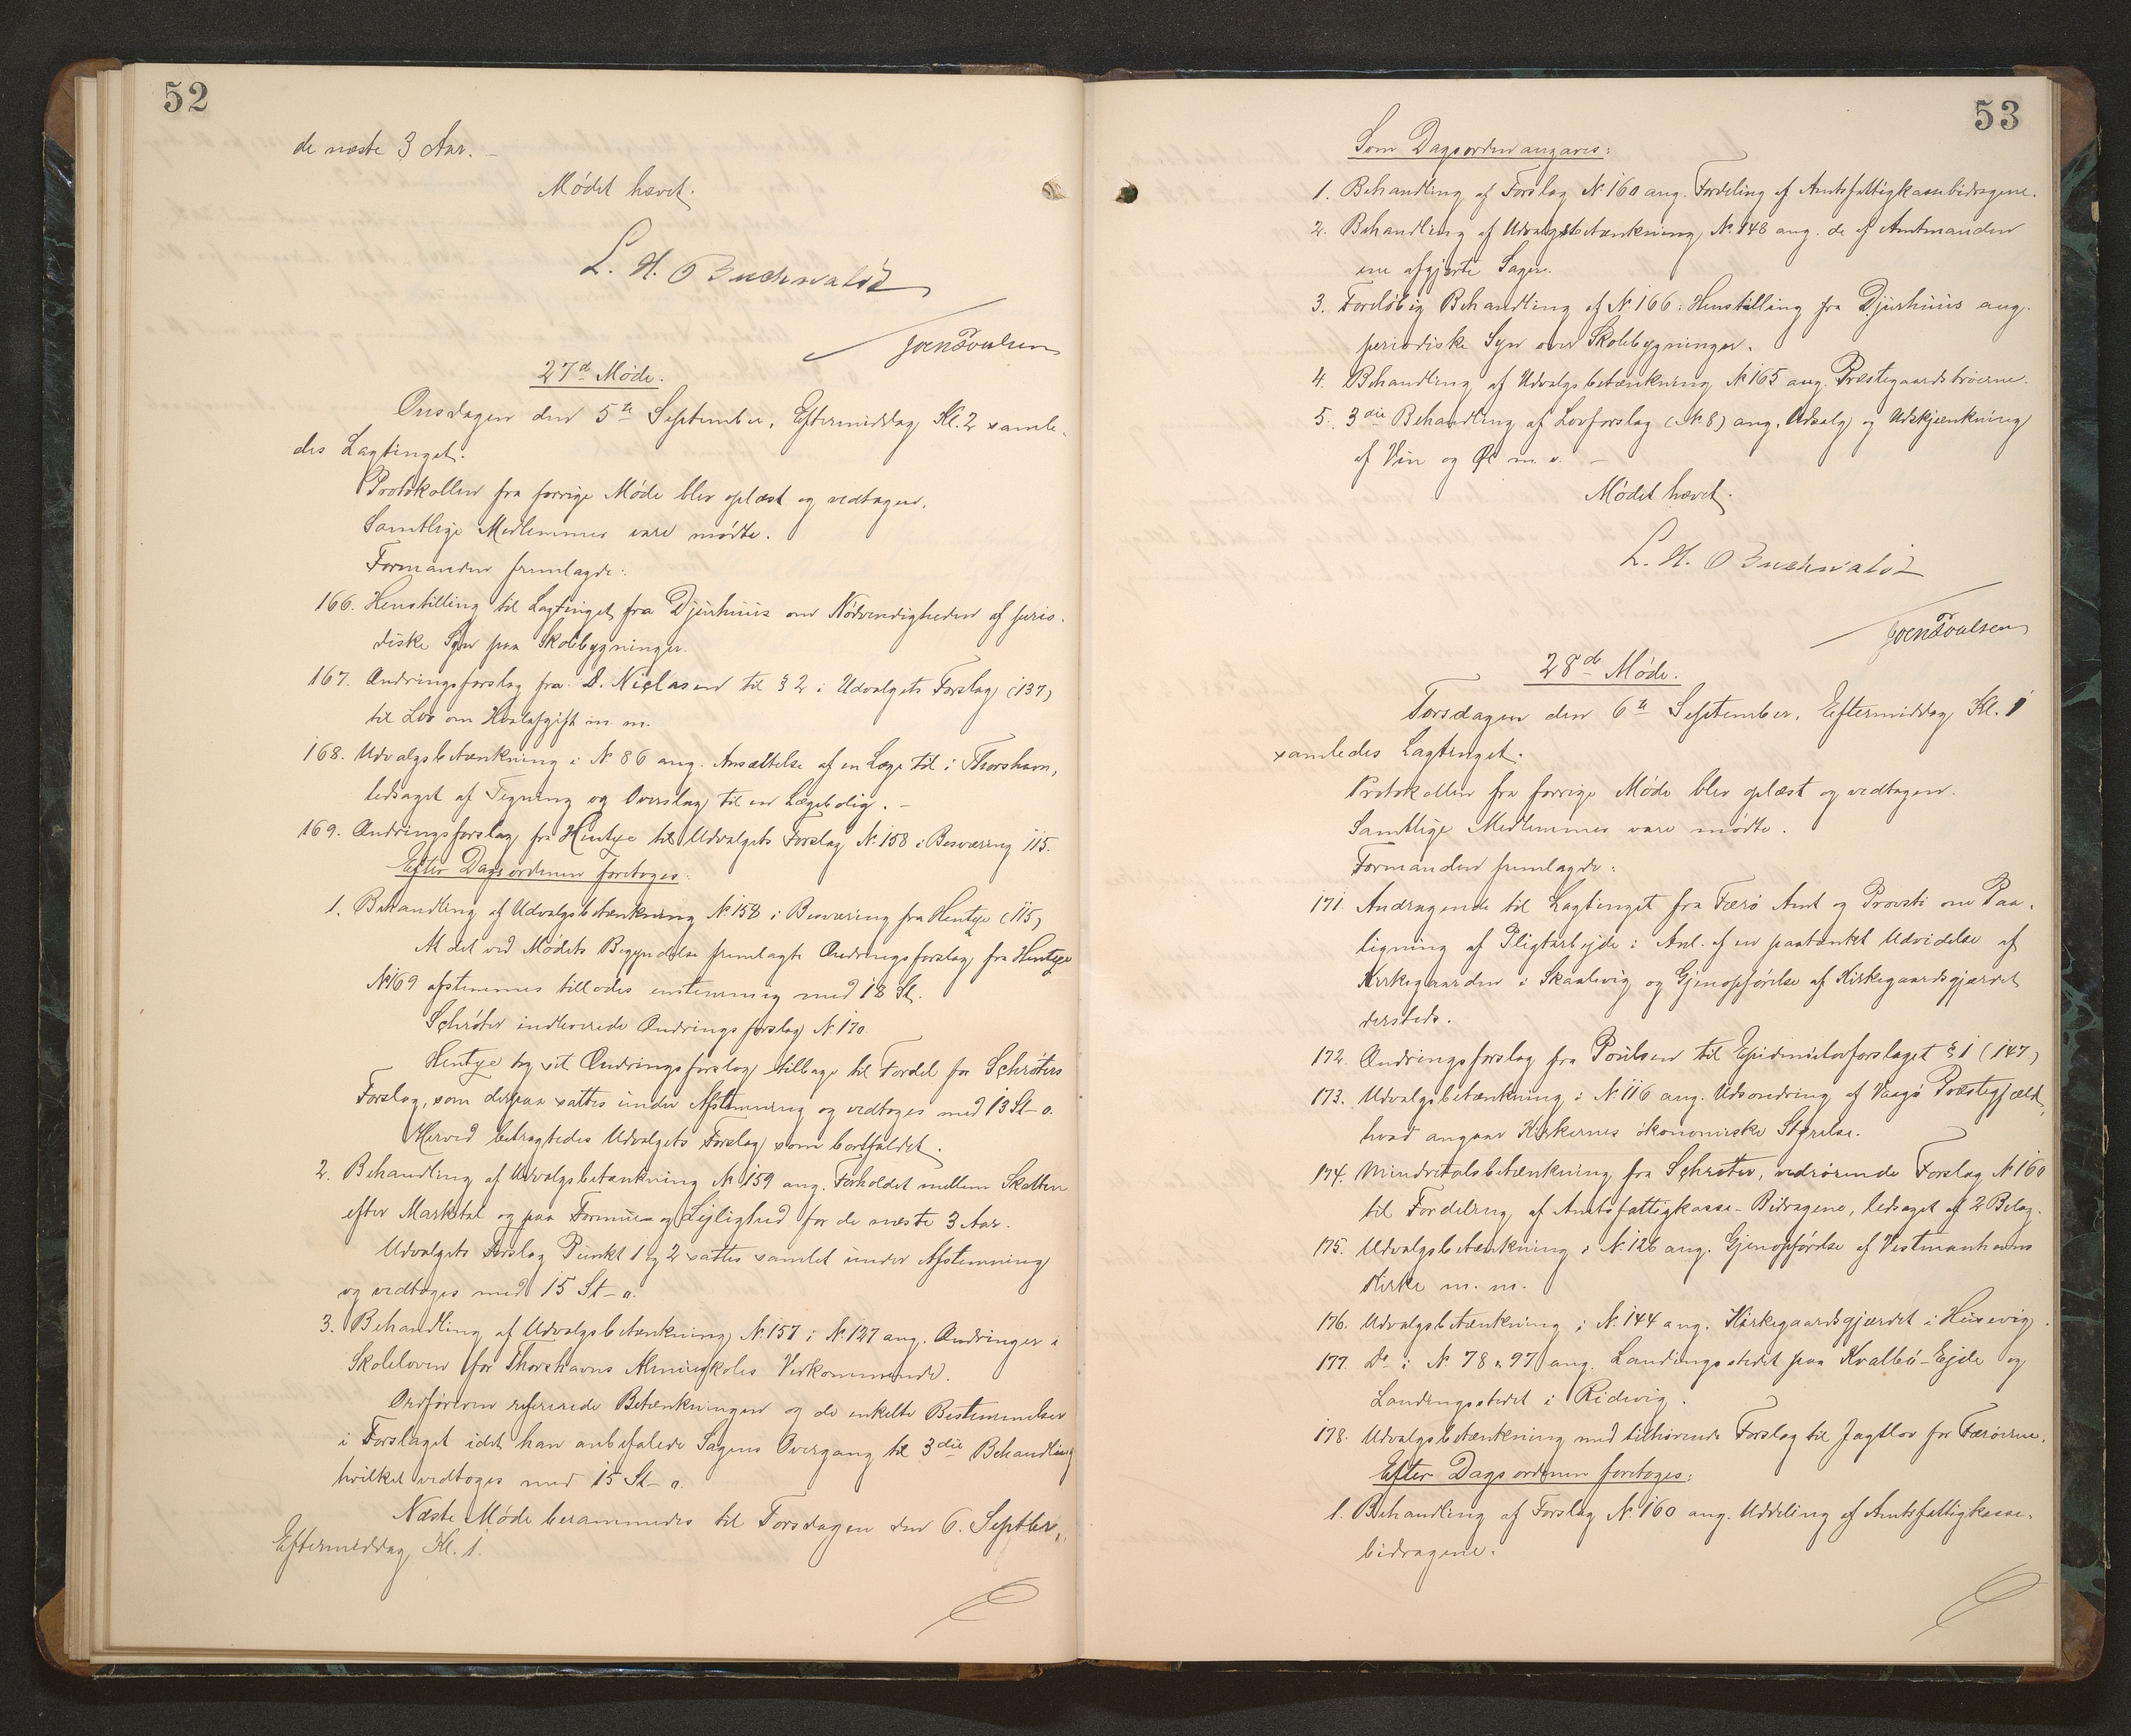 52
de næste 3 Aar. –
Mødet hævet.
L. H. Buchwaldt
Joen Poulsen
27de Møde.
Onsdagen den 5te September, Eftermiddag Kl. 2 samle-
des Lagtinget.
Protokollen fra forrige Møde blev oplæst og vedtagen.
Samtlige Medlemmer vare mødte.
Formanden fremlagde:
166. Henstilling til Lagtinget fra Djurhuus om Nødvendigheden af perio-
diske Syn paa Skolebygninger.
167. Ændringsforslag fra D. Niclasen til § 2 i Udvalgets Forslag (137)
til Lov om Hvalafgift m. m.
168. Udvalgsbetænkning i N. 86 ang. Ansættelse af en Læge til i Thorshavn,
ledsaget af Tegning og Overslag til en Lægebolig. –
169. Ændringsforslag fra Hentze til Udvalgets Forslag N. 158 i Besværing 115.
Efter Dagsordenen foretoges:
1. Behandling af Udvalgsbetænkning N. 158 i Besværing fra Hentze (115)
At det ved Mødets Begyndelse fremlagte Ændringsforslag fra Hentze
N. 169 afstemmes tillodes enstemmig med 18 St.
Schrøter indleverede Ændringsforslag N. 170
Hentze tog sit Ændringsforslag tilbage til Fordel for Schrøters
Forslag, som derpaa sattes under Afstemning og vedtoges med 13 St – o.
Herved betragtedes Udvalgets Forslag som bortfaldet.
2. Behandling af Udvalgsbetænkning N. 159 ang. Forholdet mellem Skatten
efter Marketal og paa Formue- og Lejlighed for de næste 3 Aar.
Udvalgets Forslag Punkt 1 og 2 sattes samlet under Afstemning
og vedtoges med 15 St – o.
3. Behandling af Udvalgsbetænkning N. 157 i N. 127 ang. Ændringer i
Skoleloven for Thorshavns Almueskoles Vedkommende.
Ordføreren refererede Betænkningen og de enkelte Bestemmelser
i Forslaget idet han anbefalede Sagens Overgang til 3die Behandling
hvilket vedtoges med 15 St – o.
Næste Møde berammedes til Torsdagen den 6. Septbr.,
Eftermiddag Kl. 1.
53
Som Dagsorden angaves:
1. Behandling af Forslag N. 160 ang. Fordeling af Amtsfattigkassebidragene.
2. Behandling af Udvalgsbetænkning N. 148 ang. de af Amtmanden
ene afgjorte Sager.
3. Foreløbig Behandling af N. 166: Henstilling fra Djurhuus ang.
periodiske Syn over Skolebygninger.
4. Behandling af Udvalgsbetænkning N. 165 ang. Præstegaardstrøerne.
5. 3die Behandling af Lovforslag (N. 8) ang. Udsalg og Udskjænkning
af Vin og Øl m. v. –
Mødet hævet.
L. H. Buchwaldt
Joen Poulsen
28de Møde.
Torsdagen den 6te September, Eftermiddag Kl. 1
samledes Lagtinget.
Protokollen fra forrige Møde blev oplæst og vedtagen.
Samtlige Medlemmer vare mødte.
Formanden fremlagde:
171. Andragende til Lagtinget fra Færø Amt og Provsti om Paa-
ligning af Pligtarbejde i Anl. af en paatænkt Udvidelse af
Kirkegaarden i Skaalevig og Gjenopførelse af Kirkegaardsgjærdet
dersteds.
172. Ændringsforslag fra Poulsen til Epidemilovforslaget § 1 (147)
173. Udvalgsbetænkning i N. 116 ang. Udsondring af Vaagø Præstegjæld,
hvad angaar Kirkernes økonomiske Styrelse.
174. Mindretalsbetænkning fra Schrøter, vedrørende Forslag N. 160
til Fordeling af Amtsfattigkasse-Bidragene, ledsaget af 2 Bilag.
175. Udvalgsbetænkning i N. 126 ang. Gjenopførelse af Vestmanhavns
Kirke m. m.
176. Udvalgsbetænkning i N. 144 ang. Kirkegaardsgjærdet i Husevig.
177. Do i N. 78 & 97 ang. Landingsstedet paa Kvalbø-Ejde og
Landingsstedet i Ridevig.
178. Udvalgsbetænkning med tilhørende Forslag til Jagtlov for Færøerne.
Efter Dagsordenen foretoges:
1. Behandling af Forslag N. 160 ang. Uddeling af Amtsfattigkasse-
bidragene.